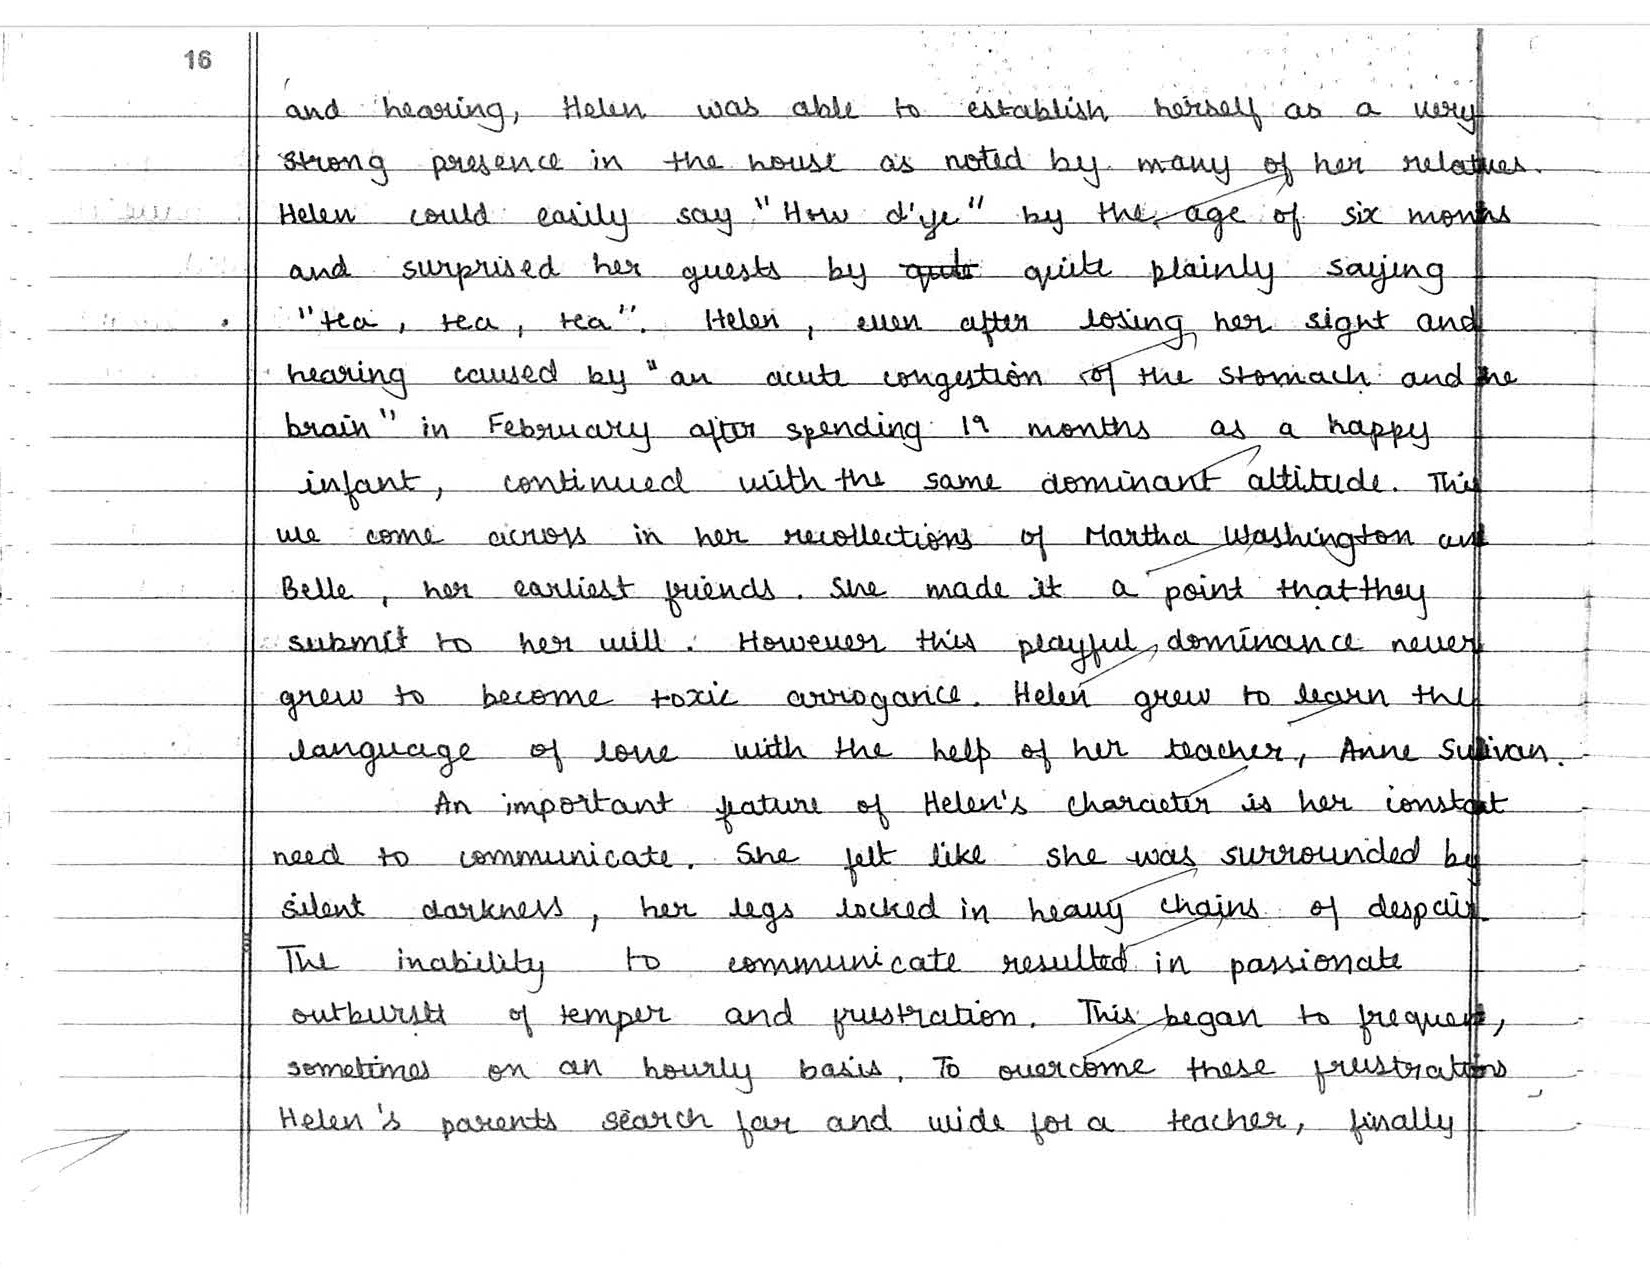 16
and hearing, Helen was able to establish herself as a very
strong presence in the house as noted by many of her relatives.
Helen could easily say "How d'ye" by the age of six months
and surprised her guests by quite quite plainly saying
"tea, tea, tea". Helen, even after losing her sight and
hearing caused by "an acute congestion of the stomach and the
brain" in February after spending 19 months as a happy
infant, continued with the same dominant attitude. This
we come across in her recollections of Martha Washington and
Belle, her earliest friends. She made it a point that they
submit to her will. However this playful dominance never
grew to become toxic arrogance. Helen grew to learn the
language of love with the help of her teacher, Anne Sullivan.
An important feature of Helen's character is her constant
need to communicate. She felt like she was surrounded by
silent darkness, her legs locked in heavy chains of despair.
The inability to communicate resulted in passionate
outbursts of temper and frustration. This began to frequent,
sometimes on an hourly basis. To overcome these frustrations
Helen's parents search far and wide for a teacher, finally